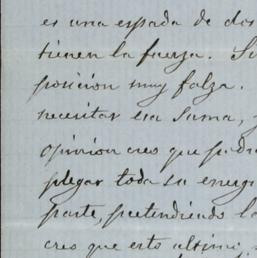 es una espada de dos
tienen la fuerza. Su
posicion muy falza.
necesitar esa suma,
opinion creo que
plegar toda su energi
parte, pretendiendo l
creo que esto